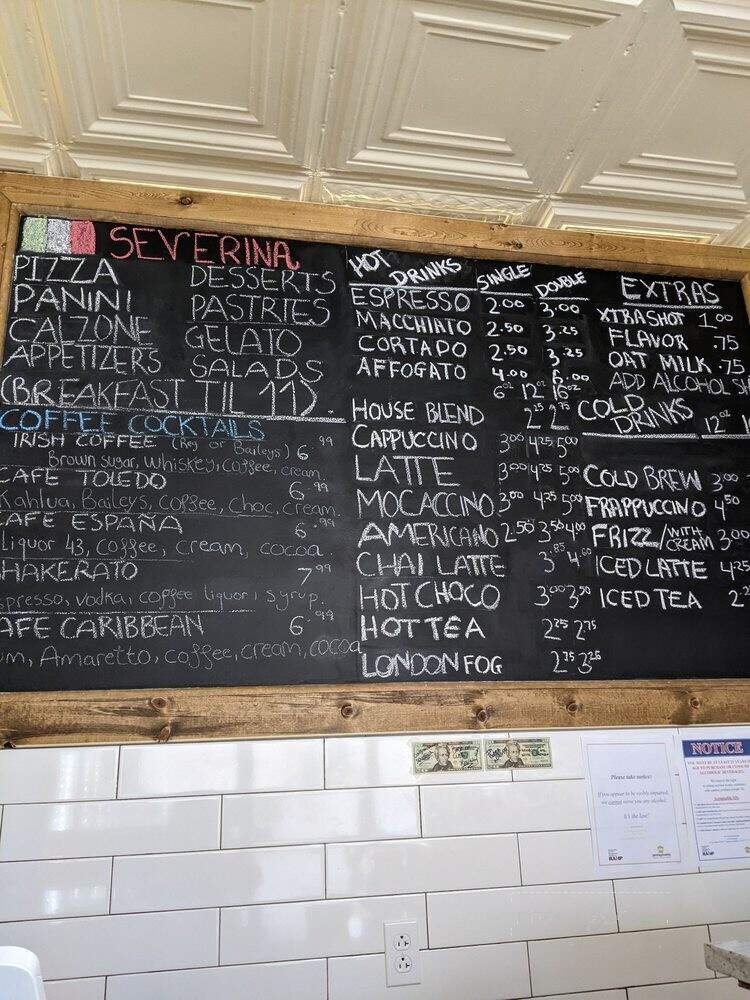 SEVERINA
PIZZA DESSERTS
PANINI PASTRIES
CALZONE GELATO
APPETIZERS SALADS
(BREAKFAST TIL 11).
COFFEE COCKTAILS
IRISH COFFEE (Reg or Baileys) 6.99
Brown sugar, whiskey, coffee, cream
CAFE TOLEDO 6.99
Kahlua, Baileys, coffee, choc, cream.
AFE ESPAÑA 6.99
Liquor 43, coffee, cream, cocoa.
HAKERATO 7.99
spresso, vodka, coffee liquor, syrup.
AFE CARIBBEAN 6.99
um, Amaretto, coffee, cream, cocoa
HOT DRINKS SINGLE DOUBLE
ESPRESSO 2.00 3.00
MACCHIATO 2.50 3.25
CORTADO 2.50 3.25
AFFOGATO 4.00 6.00
6oz 12oz 16oz
HOUSE BLEND 2.25 2.75
CAPPUCCINO 3.00 4.25 5.00
LATTE 3.00 4.25 5.00
MOCACCINO 3.00 4.25 5.00
AMERICANO 2.50 3.50 4.00
CHAI LATTE 3.85
HOT CHOCO 3.00 3.50
HOT TEA 2.25 2.75
LONDON FOG 2.75 3.25
EXTRAS
XTRA SHOT 1.00
FLAVOR .75
OAT MILK .75
ADD ALCOHOL
COLD DRINKS 12oz
COLD BREW 3.00
FRAPPUCCINO 4.50
FRIZZ/WITH CREAM 3.00
ICED LATTE 4.25
ICED TEA
Please take notice:
If you appear to be visibly impaired,
we cannot serve you any alcohol.
It's the law!
RAMP
NOTICE
RAMP